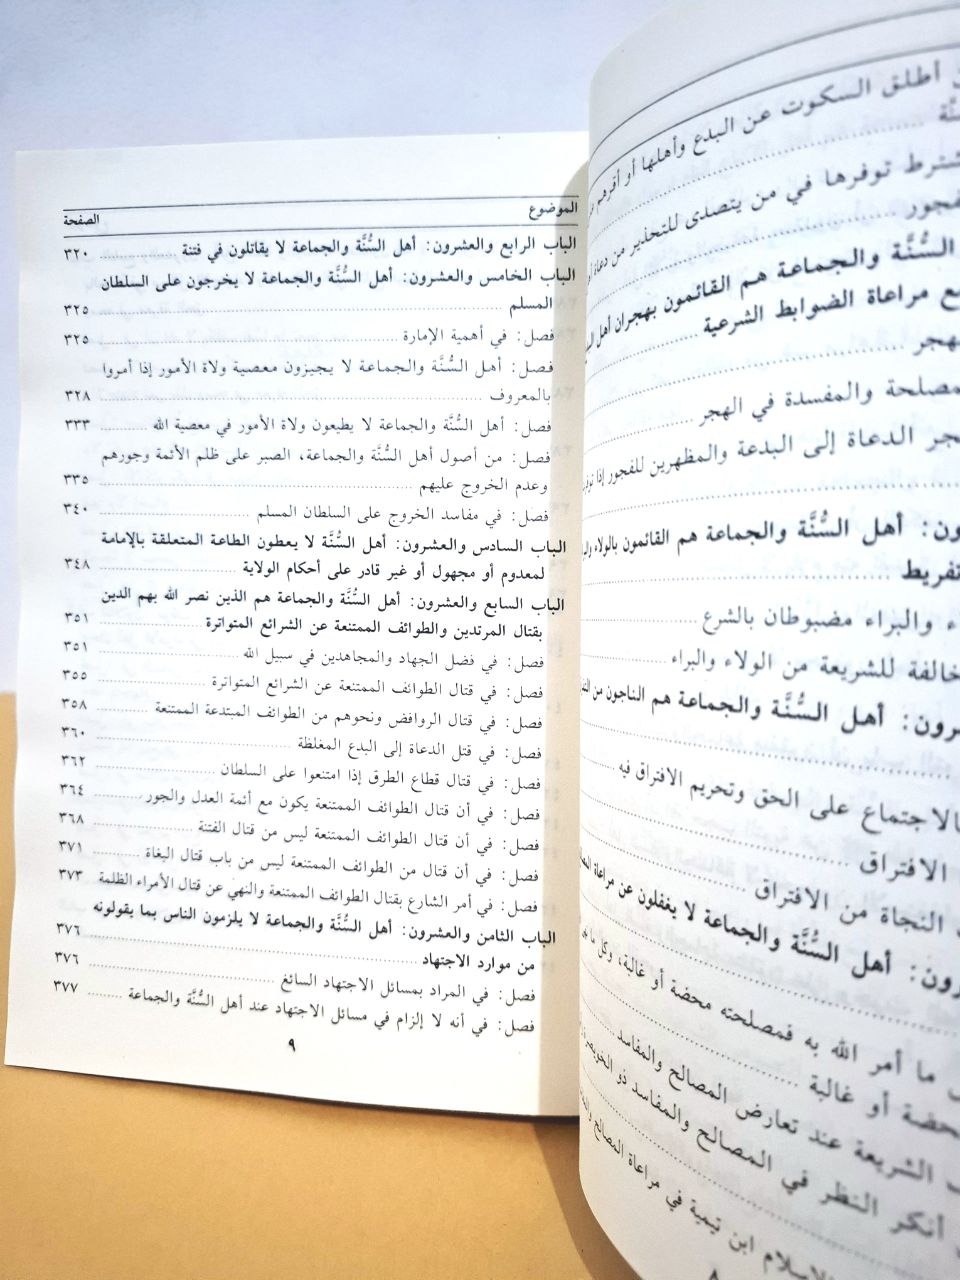 ن أطلق السكوت عن البدع وأهلها أو أقرهم
شترط توفرها في من يتصدى للتحذير من دعاة
فجور
السُّنَّة والجماعة هم القائمون بهجران أهل
ع مراعاة الضوابط الشرعية
هجر
مصلحة والمفسدة في الهجر
جر الدعاة إلى البدعة والمظهرين للفجور إذا
ون: أهل السُّنَّة والجماعة هم القائمون بالولاء
تفريط
ء والبراء مضبوطان بالشرع
خالفة للشريعة من الولاء والبراء
رون: أهل السُّنَّة والجماعة هم الناجون من
الاجتماع على الحق وتحريم الافتراق فيه
الافتراق
النجاة من الافتراق
رون: أهل السُّنَّة والجماعة لا يغفلون عن مراعاة
ما أمر الله به فمصلحته محضة أو غالبة، وكل ما
حضة أو غالبة
الشريعة عند تعارض المصالح والمفاسد
أنكر النظر في المصالح والمفاسد ذو الخويصرة
الإسلام ابن تيمية في مراعاة المصالح
٨
الموضوع الصفحة
الباب الرابع والعشرون: أهل السُّنَّة والجماعة لا يقاتلون في فتنة ٣٢٠
الباب الخامس والعشرون: أهل السُّنَّة والجماعة لا يخرجون على السلطان
المسلم ٣٢٥
فصل: في أهمية الإمارة ٣٢٥
فصل: أهل السُّنَّة والجماعة لا يجيزون معصية ولاة الأمور إذا أمروا
بالمعروف ٣٢٨
فصل: أهل السُّنَّة والجماعة لا يطيعون ولاة الأمور في معصية الله ٣٣٣
فصل: من أصول أهل السُّنَّة والجماعة، الصبر على ظلم الأئمة وجورهم
وعدم الخروج عليهم ٣٣٥
فصل: في مفاسد الخروج على السلطان المسلم ٣٤٠
الباب السادس والعشرون: أهل السُّنَّة لا يعطون الطاعة المتعلقة بالإمامة
لمعدوم أو مجهول أو غير قادر على أحكام الولاية ٣٤٨
الباب السابع والعشرون: أهل السُّنَّة والجماعة هم الذين نصر الله بهم الدين
بقتال المرتدين والطوائف الممتنعة عن الشرائع المتواترة ٣٥١
فصل: في فضل الجهاد والمجاهدين في سبيل الله ٣٥١
فصل: في قتال الطوائف الممتنعة عن الشرائع المتواترة ٣٥٥
فصل: في قتال الروافض ونحوهم من الطوائف المبتدعة الممتنعة ٣٥٨
فصل: في قتل الدعاة إلى البدع المغلظة ٣٦٠
فصل: في قتال قطاع الطرق إذا امتنعوا على السلطان ٣٦٢
فصل: في أن قتال الطوائف الممتنعة يكون مع أئمة العدل والجور ٣٦٤
فصل: في أن قتال الطوائف الممتنعة ليس من قتال الفتنة ٣٦٨
فصل: في أن قتال من الطوائف الممتنعة ليس من باب قتال البغاة ٣٧١
فصل: في أمر الشارع بقتال الطوائف الممتنعة والنهي عن قتال الأمراء الظلمة ٣٧٣
الباب الثامن والعشرون: أهل السُّنَّة والجماعة لا يلزمون الناس بما يقولونه
من موارد الاجتهاد ٣٧٦
فصل: في المراد بمسائل الاجتهاد السائغ ٣٧٦
فصل: في أنه لا إلزام في مسائل الاجتهاد عند أهل السُّنَّة والجماعة ٣٧٧
٩